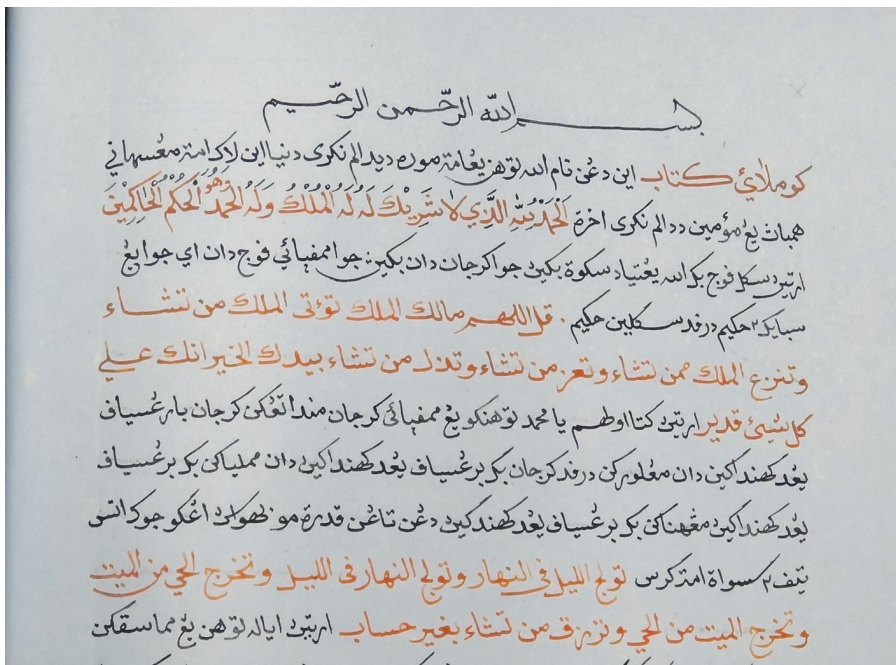 بسم الله الرحمن الرحيم
كوملائي كتاب اين دڠن نام الله توهن يڠامة موره ديدالم نكري دنيا اين لاݢ امة مڠسهاني
همباث يڠ مؤمين ددالم نكري اخرة اَلْحَمْدُ لِلّٰهِ الَّذِي لَا شَرِيْكَ لَهُ لَهُ الْمُلْكُ وَلَهُ الْحَمْدُ هُوَ الْحَكَمُ الْحَاكِمِيْنَ
ارتين سكل فوج بݢ الله يڠتياد سكوة بݢين جوا كرجان دان بݢين جوا ممفپائي فوج دان اي جوا يڠ
سبايك٢ حكيم درفد سكلين حكيم . قل اللهم مالك الملك تؤتى الملك من تشاء
وتنزع الملك ممن تشاء وتعز من تشاء وتذل من تشاء بيدك الخير انك علي
كل شيئ قدير ارتين كتا اولهم يا محمد توهنكو يڠ ممفپائي كرجان منداتڠكن كرجان بارڠسياف
يڠدكهنداكين دان مڠلورکن درفد كرجان بݢ برڠسياف يڠدكهنداكين دان مملياكن بݢ برڠسياف
يڠدكهنداكين مڠهناكن بݢ برڠسياف يڠدكهندكين دڠن تاڠن قدرةمو بهواسن اڠكو جوݢ اتس
تيف٢ سسواة امة كرس تولج الليل فى النهار وتولج النهار فى الليل وتخرج الحي من الميت
وتخرج الميت من الحي وترزق من تشاء بغير حساب ارتين اياله توهن يڠ مماسقكن